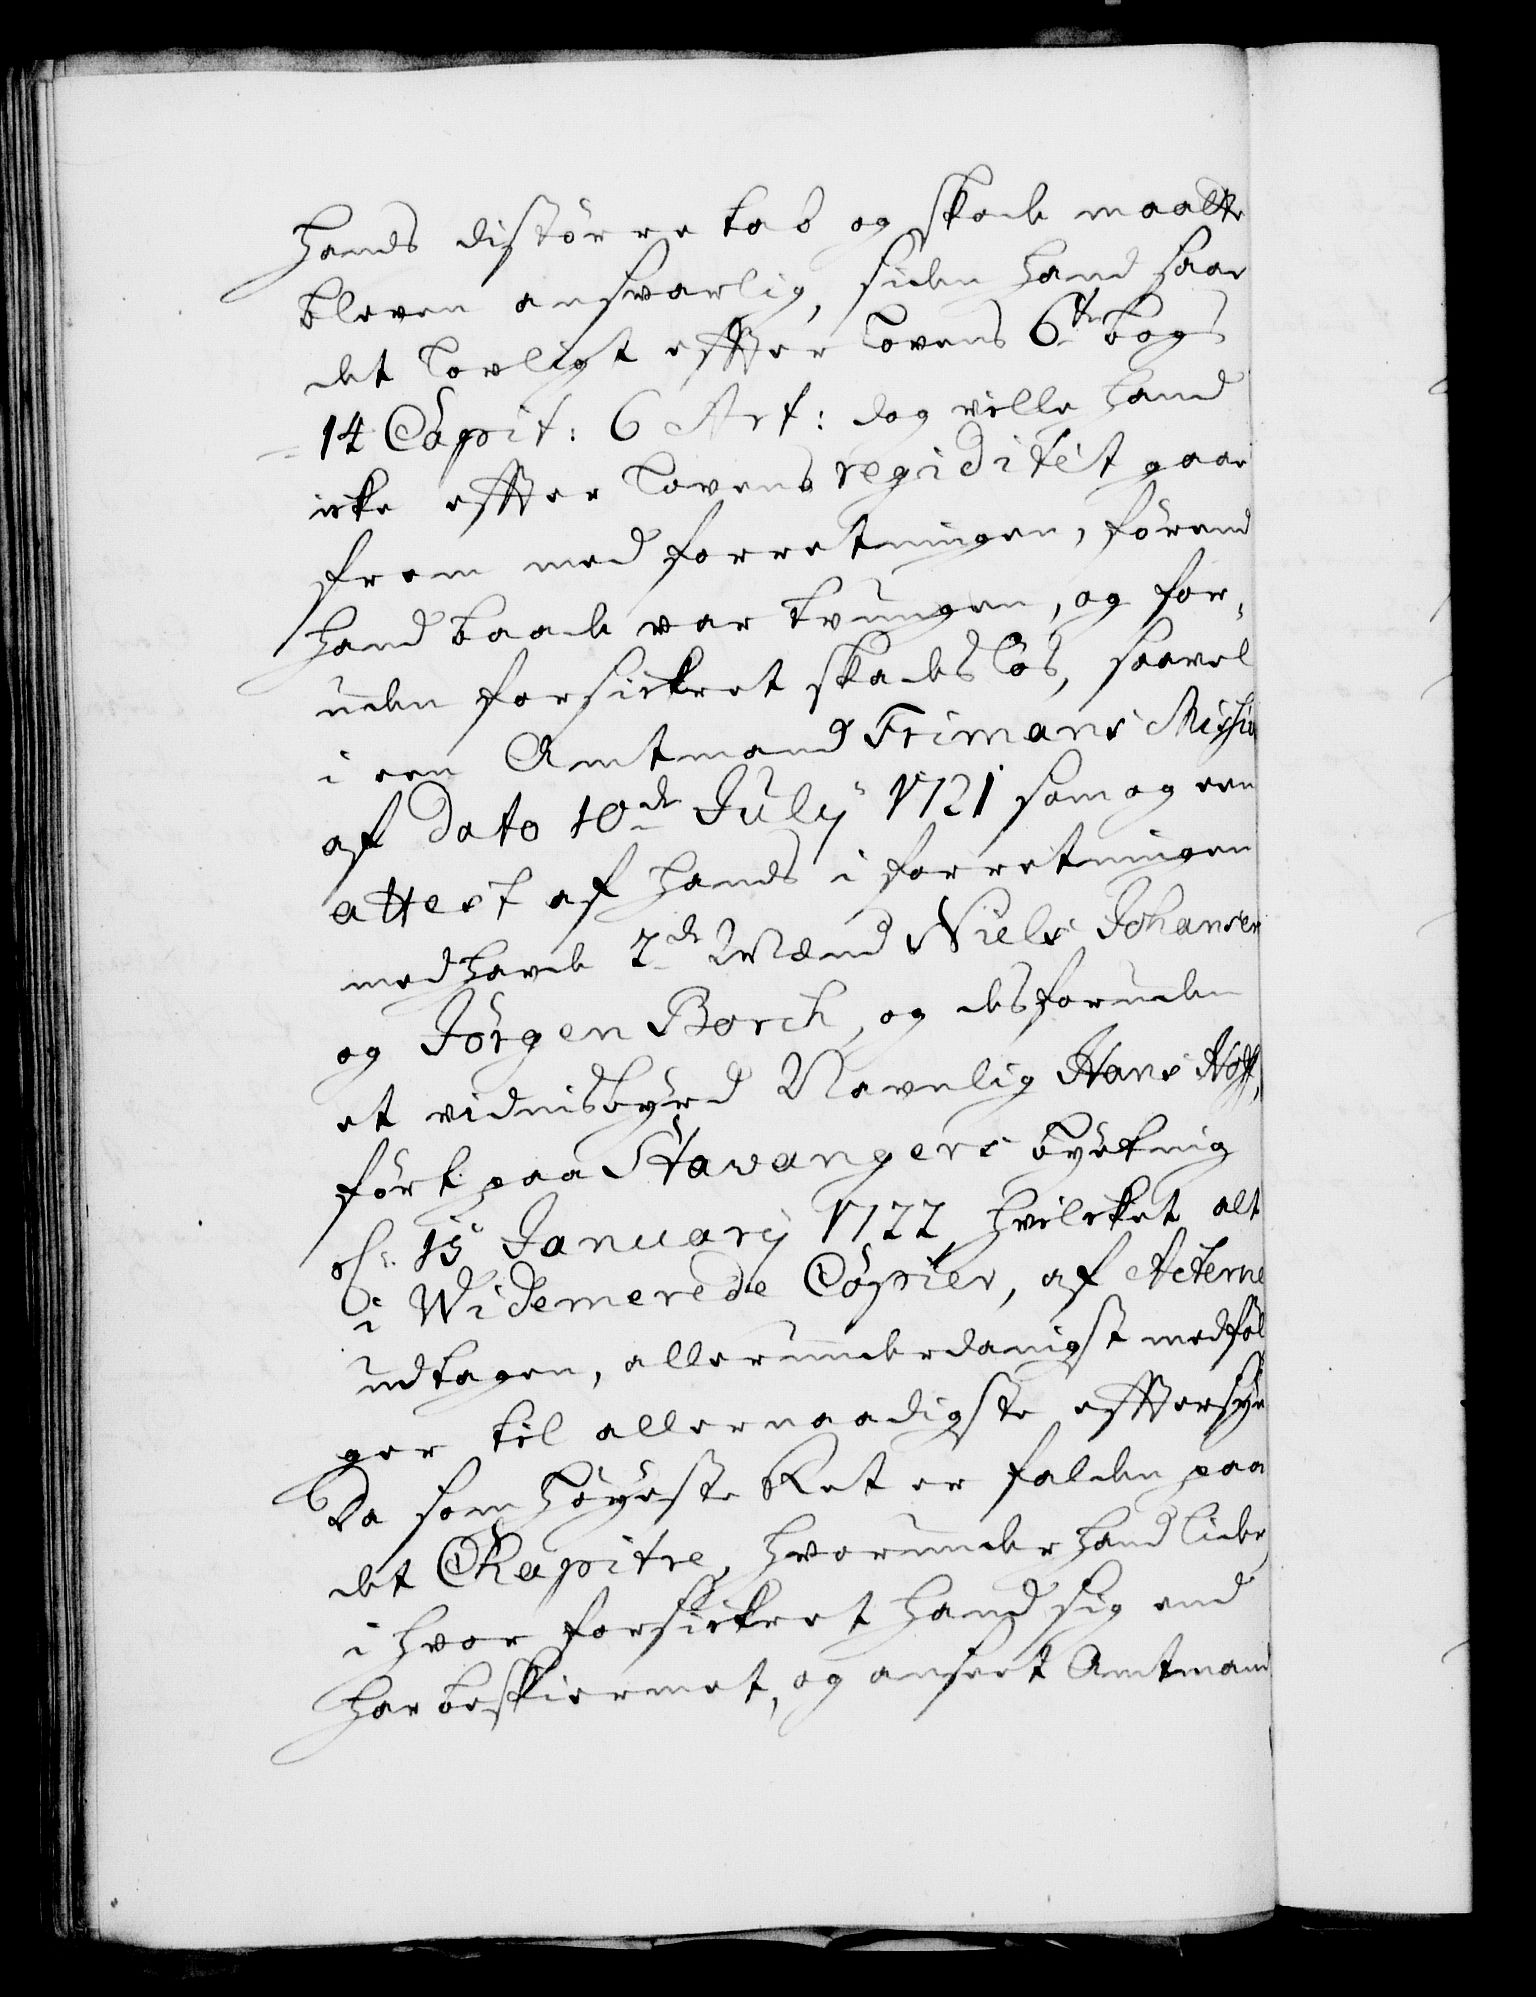 hands distörre tab og skade maatte
bleven ansvarlig, siden hand saae
det lovligt effter Lovens 6te bogs
14 Capit: 6 Art: dog ville hand
icke effter Lovens regiditét gaae
frem med forretningen, förend
hand baade var tvungen, og for,,
uden forsickret skadeslös, saavel
i een Amtmand Frimans Missiv
af Dato 10de July 1721 som og een
attest af hands i forretningen
medhavde 2de Mænd Niels Johansen
og Jörgen Borch, og desforuden
et vidnisbyrd Navnlig Hans Hoff,
fört paa Stavangers byeting
15 January 1722, hvilcket alt
i Widemerede Copier, af Acterne
udtagen, allerunderdanigst medföl
ger til allernaadigste efftersyn
Da som höyeste Ret er falden paa
det Chapitre, hvorunder hand lider
i hvor forsickret hand sig end
har beskiermet, og anseet Amtmand